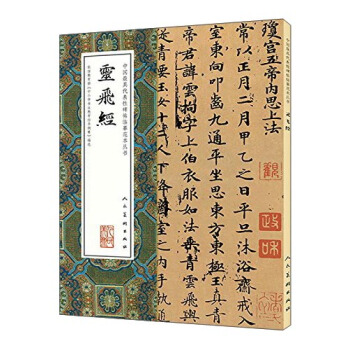 瓊宮五帝內思上法
常以正月二月甲乙之日平旦沐浴齋戒入
室東向叩齒九通平坐思東方東極玉真青
帝君諱雲拘字上伯衣服如法乘青雲飛輿
從青要玉女十二人下降齋室之內手執
觀
政
和
中国最具代表性碑帖临摹范本丛书
靈飛經
人民美術出版社